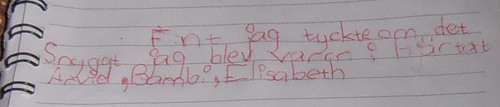 Fint jag tyckte om det
Snyggt jag blev varm i hjärtat
Arvid, Bambi, Elisabeth